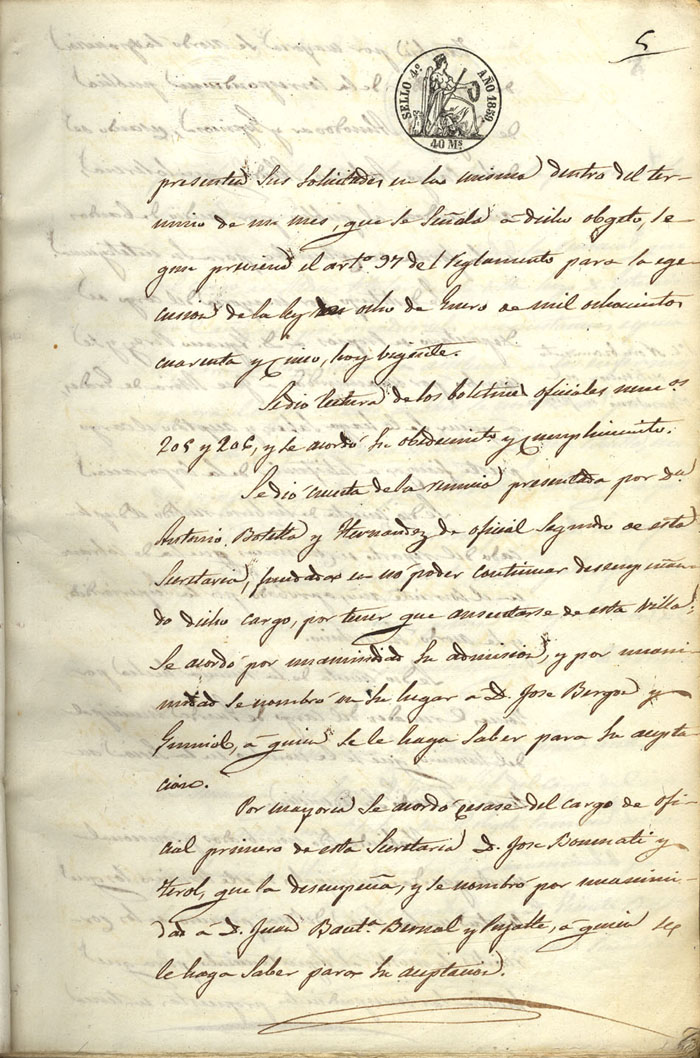 5
SELLO 4º AÑO 1859
40 Mˢ
presenten sus solicitudes en la misma dentro del ter-
mino de un mes, que se señala á dicho obgeto, se-
gun previene el artº 97 del Reglamento para la ege-
cusion de la ley de ocho de Enero de mil ochocientos
cuarenta y cinco, hoy bigente.
Se dio lectura de los boletines oficiales numºˢ
205 y 206, y se acordó su obedecimto y cumplimiento.
Se dió cuenta de la renuncia presentada por Dn
Antonio Botella y Hernandez de oficial segundo de esta
Secretaria, fundada en no poder continuar desempeñan-
do dicho cargo, por tener que ausentarse de esta Villa;
Se acordó por unanimidad su admision, y por unani-
midad se nombró en su lugar a D. Jose Berges y
á quien se le haga saber para su acepta-
cion.
Por mayoria se acordó cesase del cargo de ofi-
cial primero de esta Secretaria D. Jose Bonmati y
Terol, que la desempeña, y se nombró por unanimi-
dad a D. Juan Bautª Bernal y Pujalte, á quien se
le haga saber para su aceptacion.